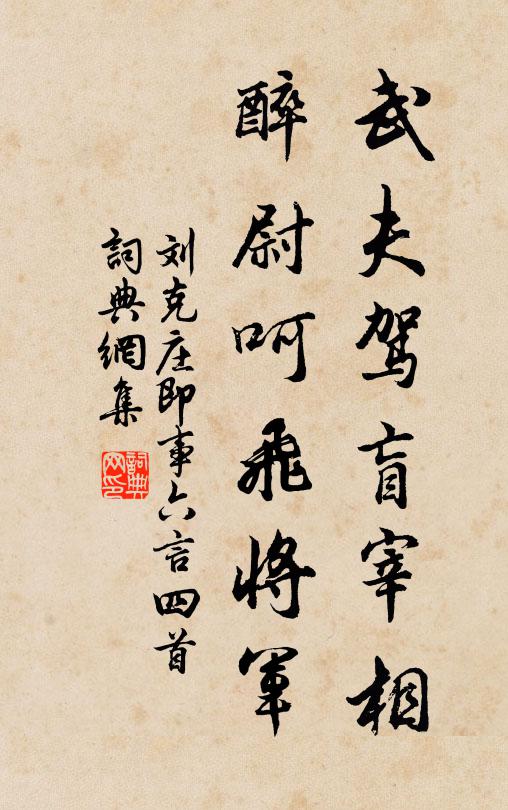 武夫駕盲宰相
醉尉呵飛將軍
刘克庄即事六言四首
詞典網集
詞典
网印